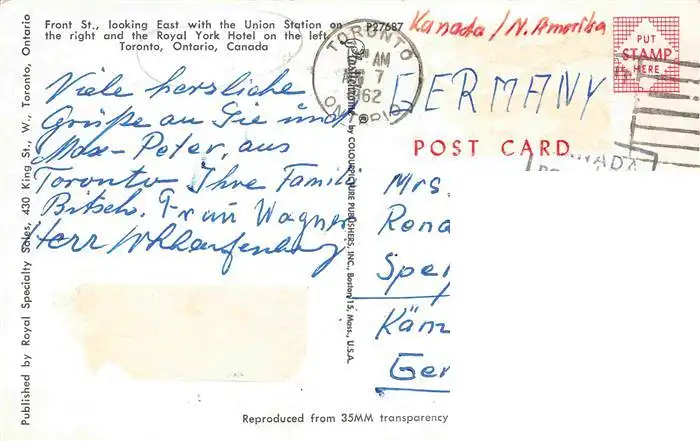 Front St., looking East with the Union Station on
the right and the Royal York Hotel on the left
Toronto, Ontario, Canada
P27687
Kanada / N. Amerika
TORONTO
AM
7
62
PUT
STAMP
HERE
GERMANY
POST CARD
Viele herzliche
Grüße an Sie und
Max-Peter, aus
Toronto Ihre Familie
Bitsch. Frau Wagner
Herr
Mrs.
Rena
Spei
Kän
Ger
Published by Royal Specialty Sales, 430 King St., W., Toronto, Ontario
Plastichrome ® by COLOURPICTURE PUBLISHERS, INC., Boston 15, Mass., U.S.A.
Reproduced from 35MM transparency